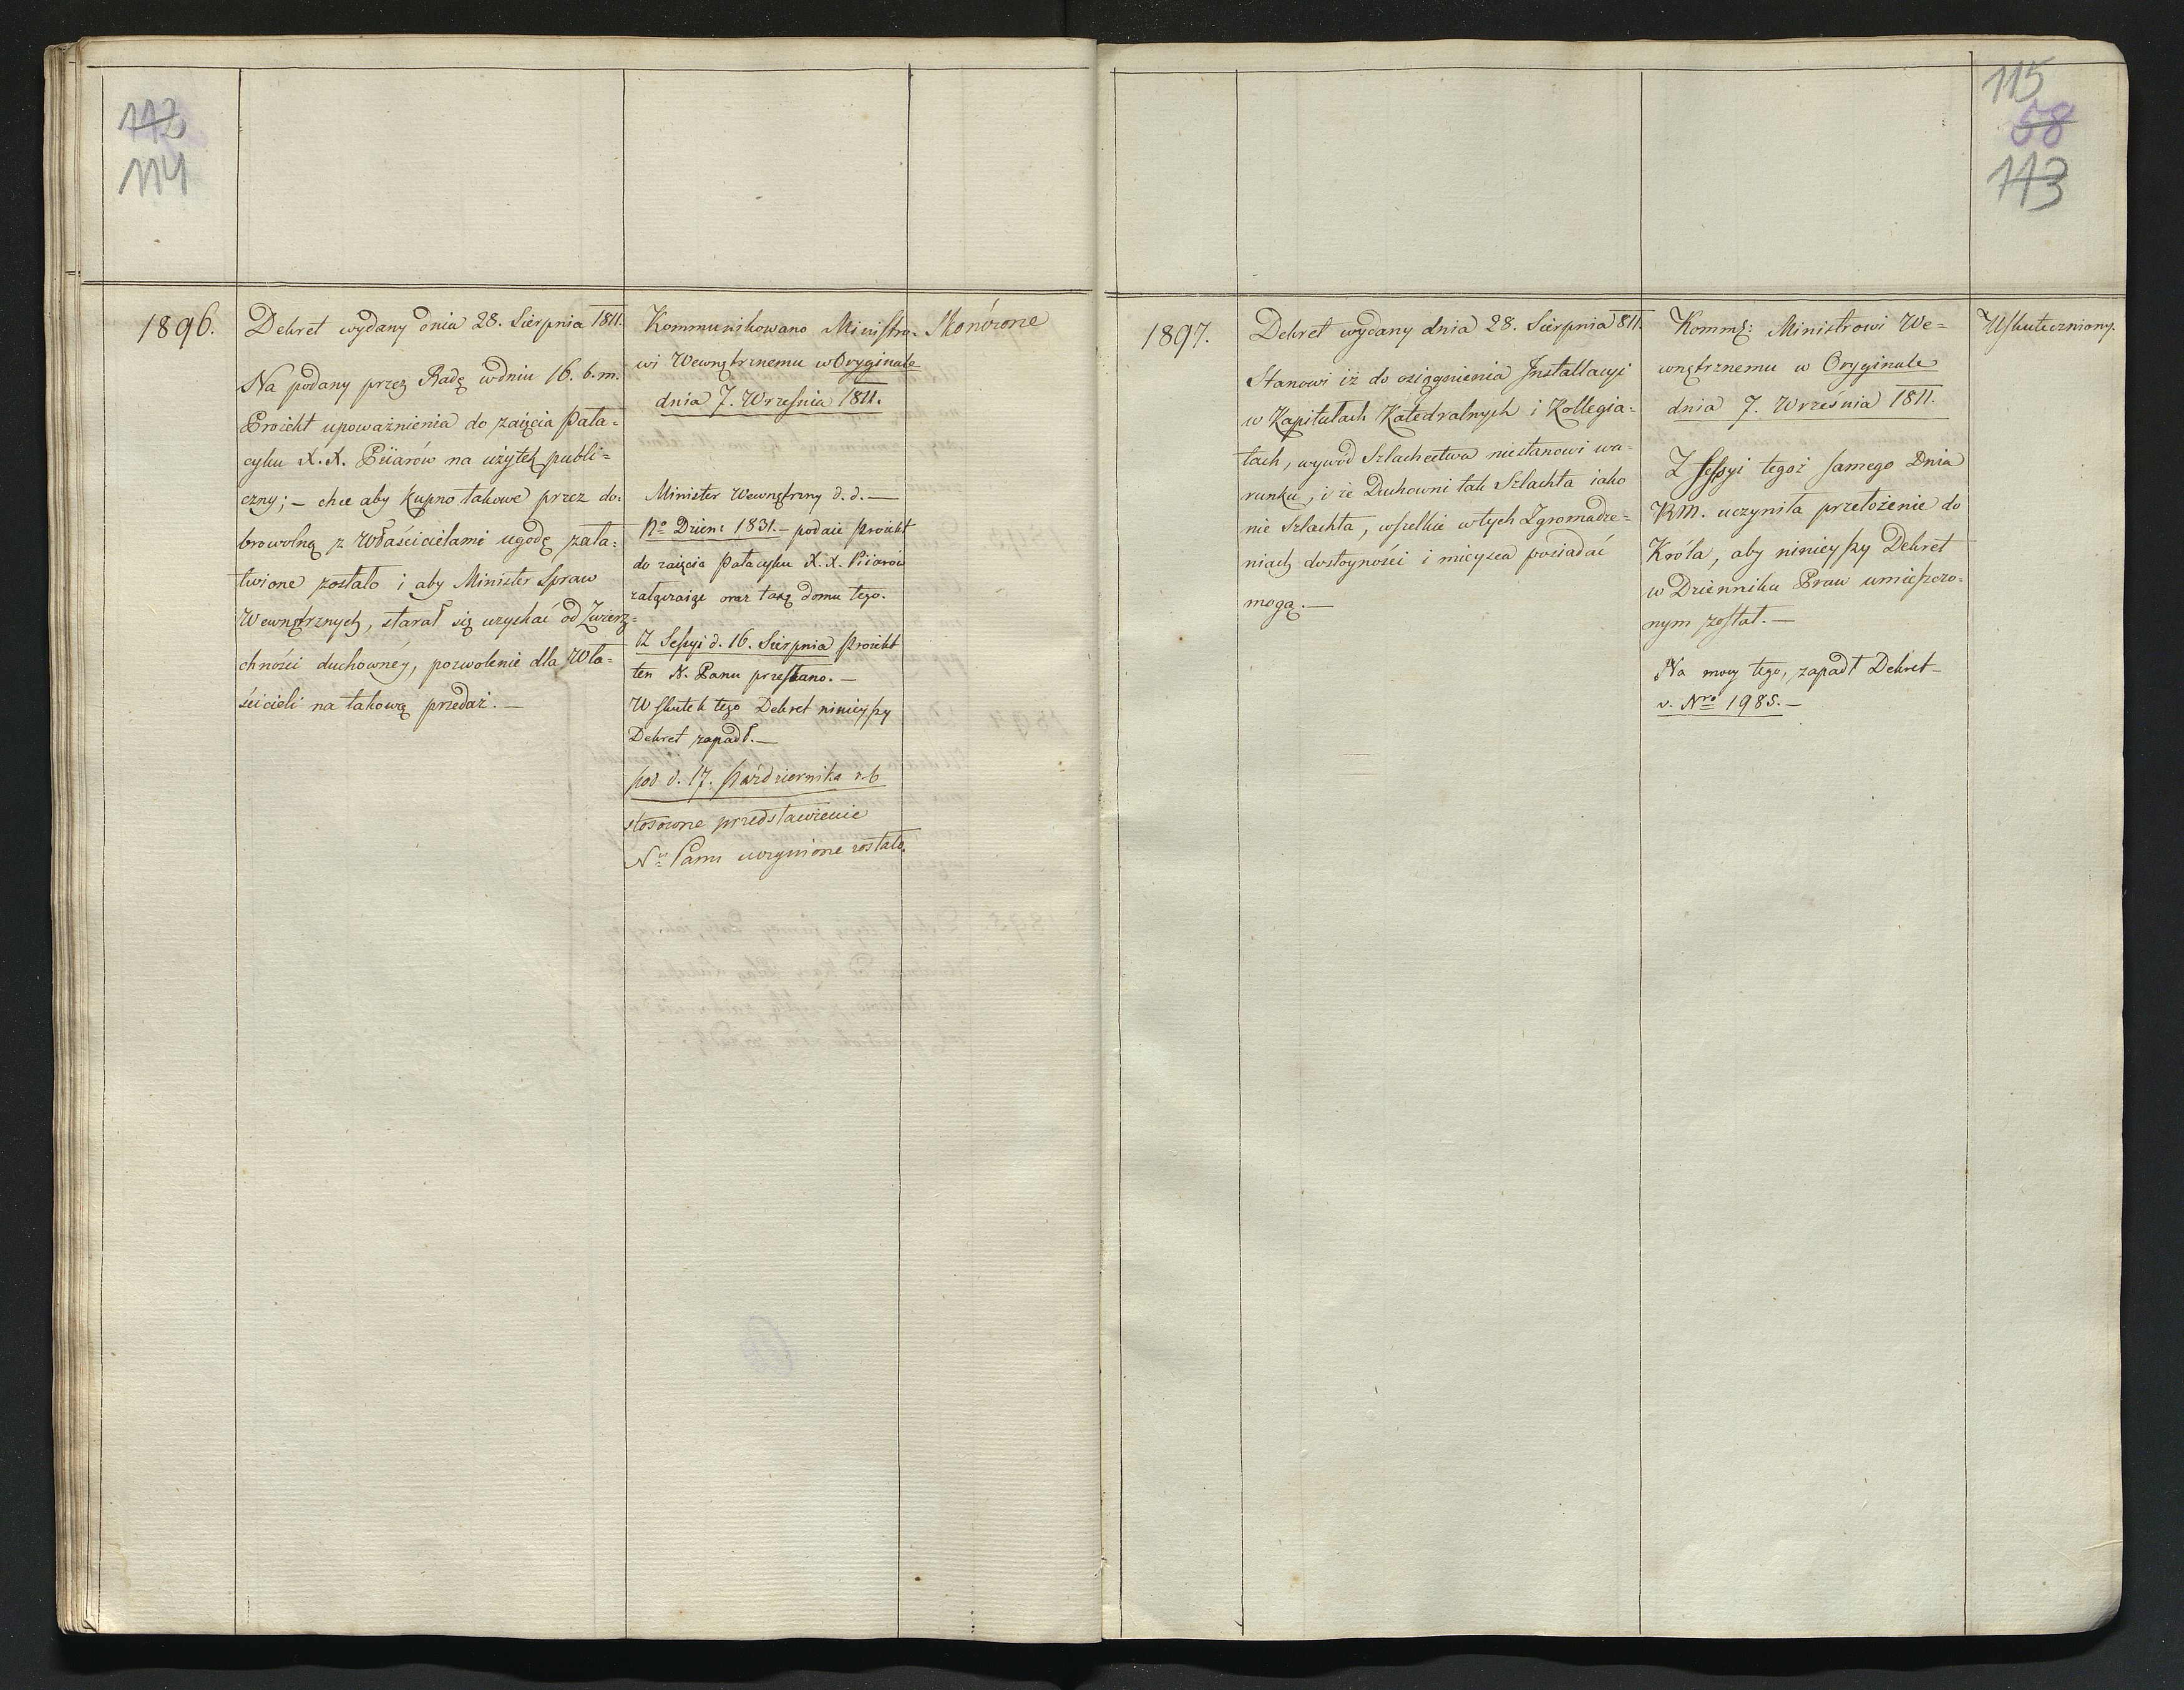 112
114
1896.
Dekret wydany dnia 28. Sierpnia 1811.
Na podany przez Radę w dniu 16. b. m.
Proiekt upoważnienia do zaięcia Pała=
cyku X. X. Piiarów na użytek publi=
czny; – chce aby kupno takowe przez do=
browolną z Właścicielami ugodę zała=
twione zostało i aby Minister Spraw
Wewnętrznych, starał się uzyskać od Zwierz=
chności duchownéy, pozwolenie dla Wła=
ścicieli na takową przedaż. –
Kommunikowano Ministro=
wi Wewnętrznemu w Oryginale
dnia 7. Września 1811.
Minister Wewnętrzny d. d. –
No Dzien: 1831. – podaie Proiekt
do zaięcia Pałacyku X. X. Piiarów
załączaiąc oraz taxę domu tego.
Z Sessyi d. 16. Sierpnia Proiekt
ten N. Panu przesłano. –
W skutek tego Dekret ninieyszy
Dekret zapadł. –
pod d. 17. Października r. b
stosowne przedstawienie
Nu Panu uczynione zostało.
Skończone
115
58
113
1897.
Dekret wydany dnia 28. Sierpnia 1811.
Stanowi iż do osiągnienia Installacyi
w Kapitułach Katedralnych i Kollegia=
tach, wywód Szlachectwa niestanowi wa=
runku, i że Duchowni tak Szlachta iako
nie Szlachta, wszelkie w tych Zgromadze=
niach dostoyności i mieysca posiadać
mogą. –
Komm: Ministrowi We=
wnętrznemu w Oryginale
dnia 7. Września 1811.
Z Sessyi tegoż samego Dnia
RM. uczyniła przełożenie do
Króla, aby ninieyszy Dekret
w Dzienniku Praw umieszczo=
nym został. –
Na mocy tego, zapadł Dekret
v. Nro 1985. –
Uskuteczniony.